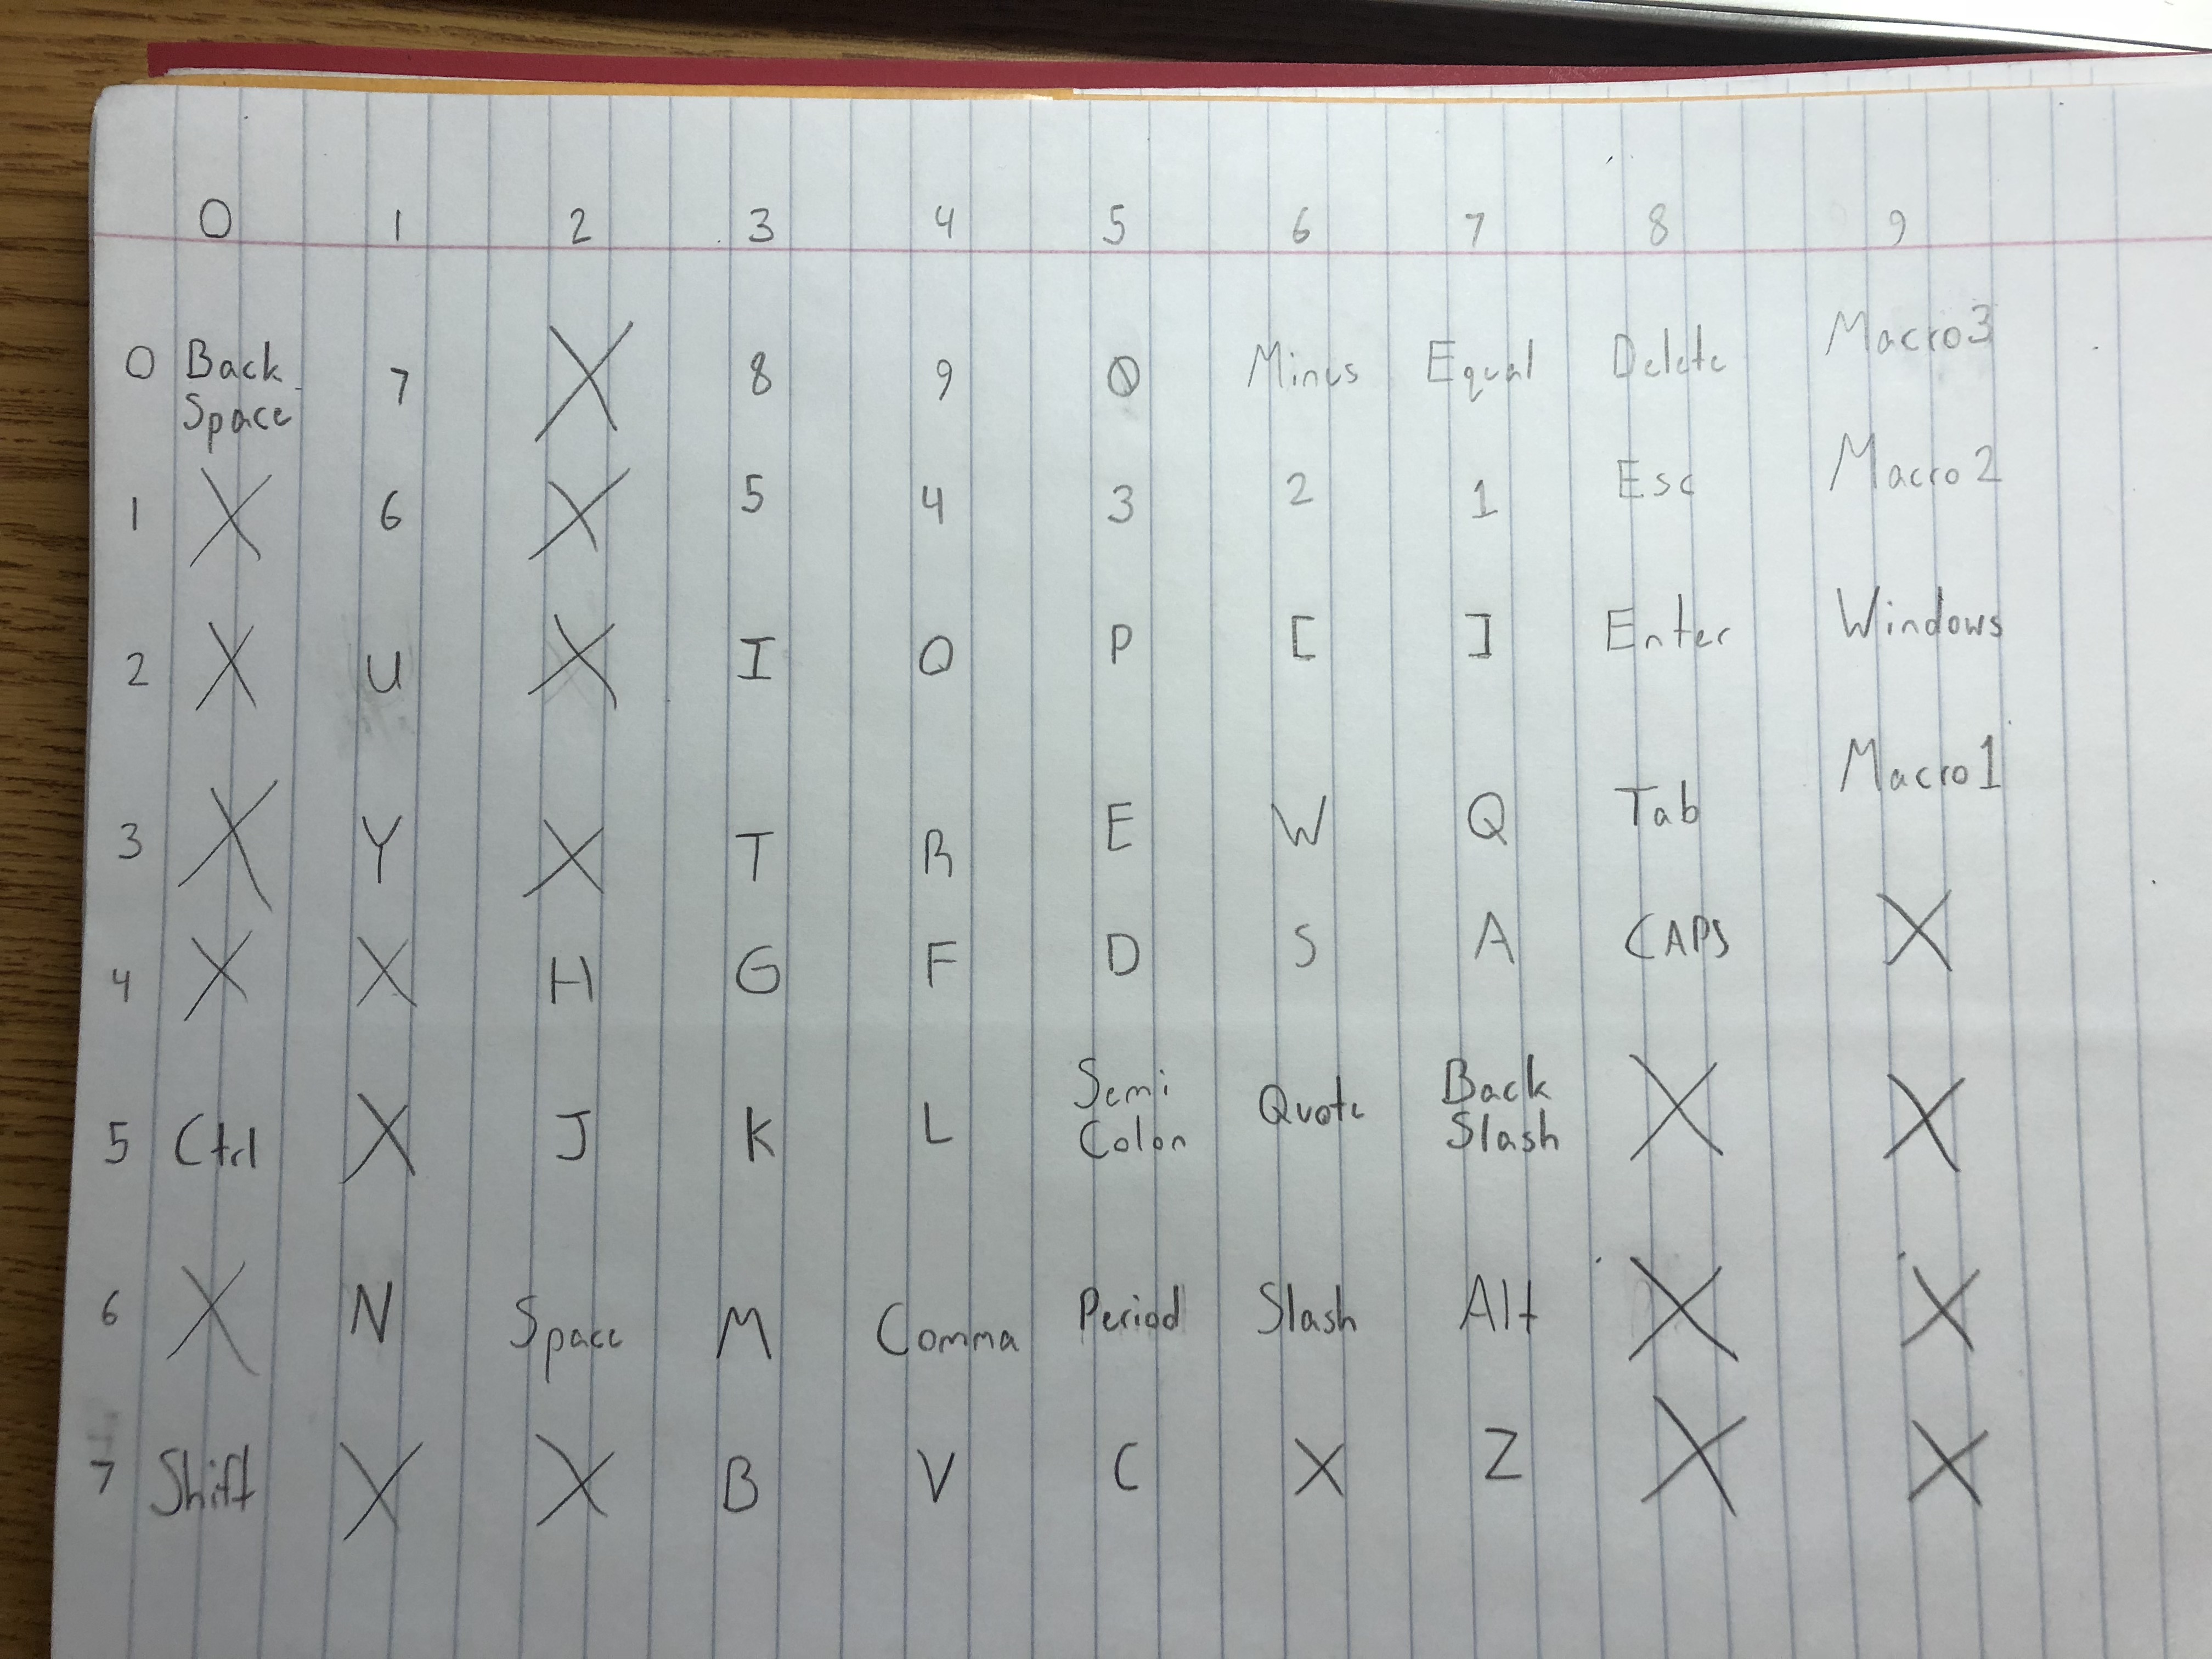 0 1 2 3 4 5 6 7 8 9
0 Back Space 7 X 8 9 0 Minus Equal Delete Macro3
1 X 6 X 5 4 3 2 1 Esc Macro2
2 X U X I O P [ ] Enter Windows
3 X Y X T R E W Q Tab Macro1
4 X X H G F D S A CAPS X
5 Ctrl X J K L Semi Colon Quote Back Slash X X
6 X N Space M Comma Period Slash Alt X X
7 Shift X X B V C X Z X X